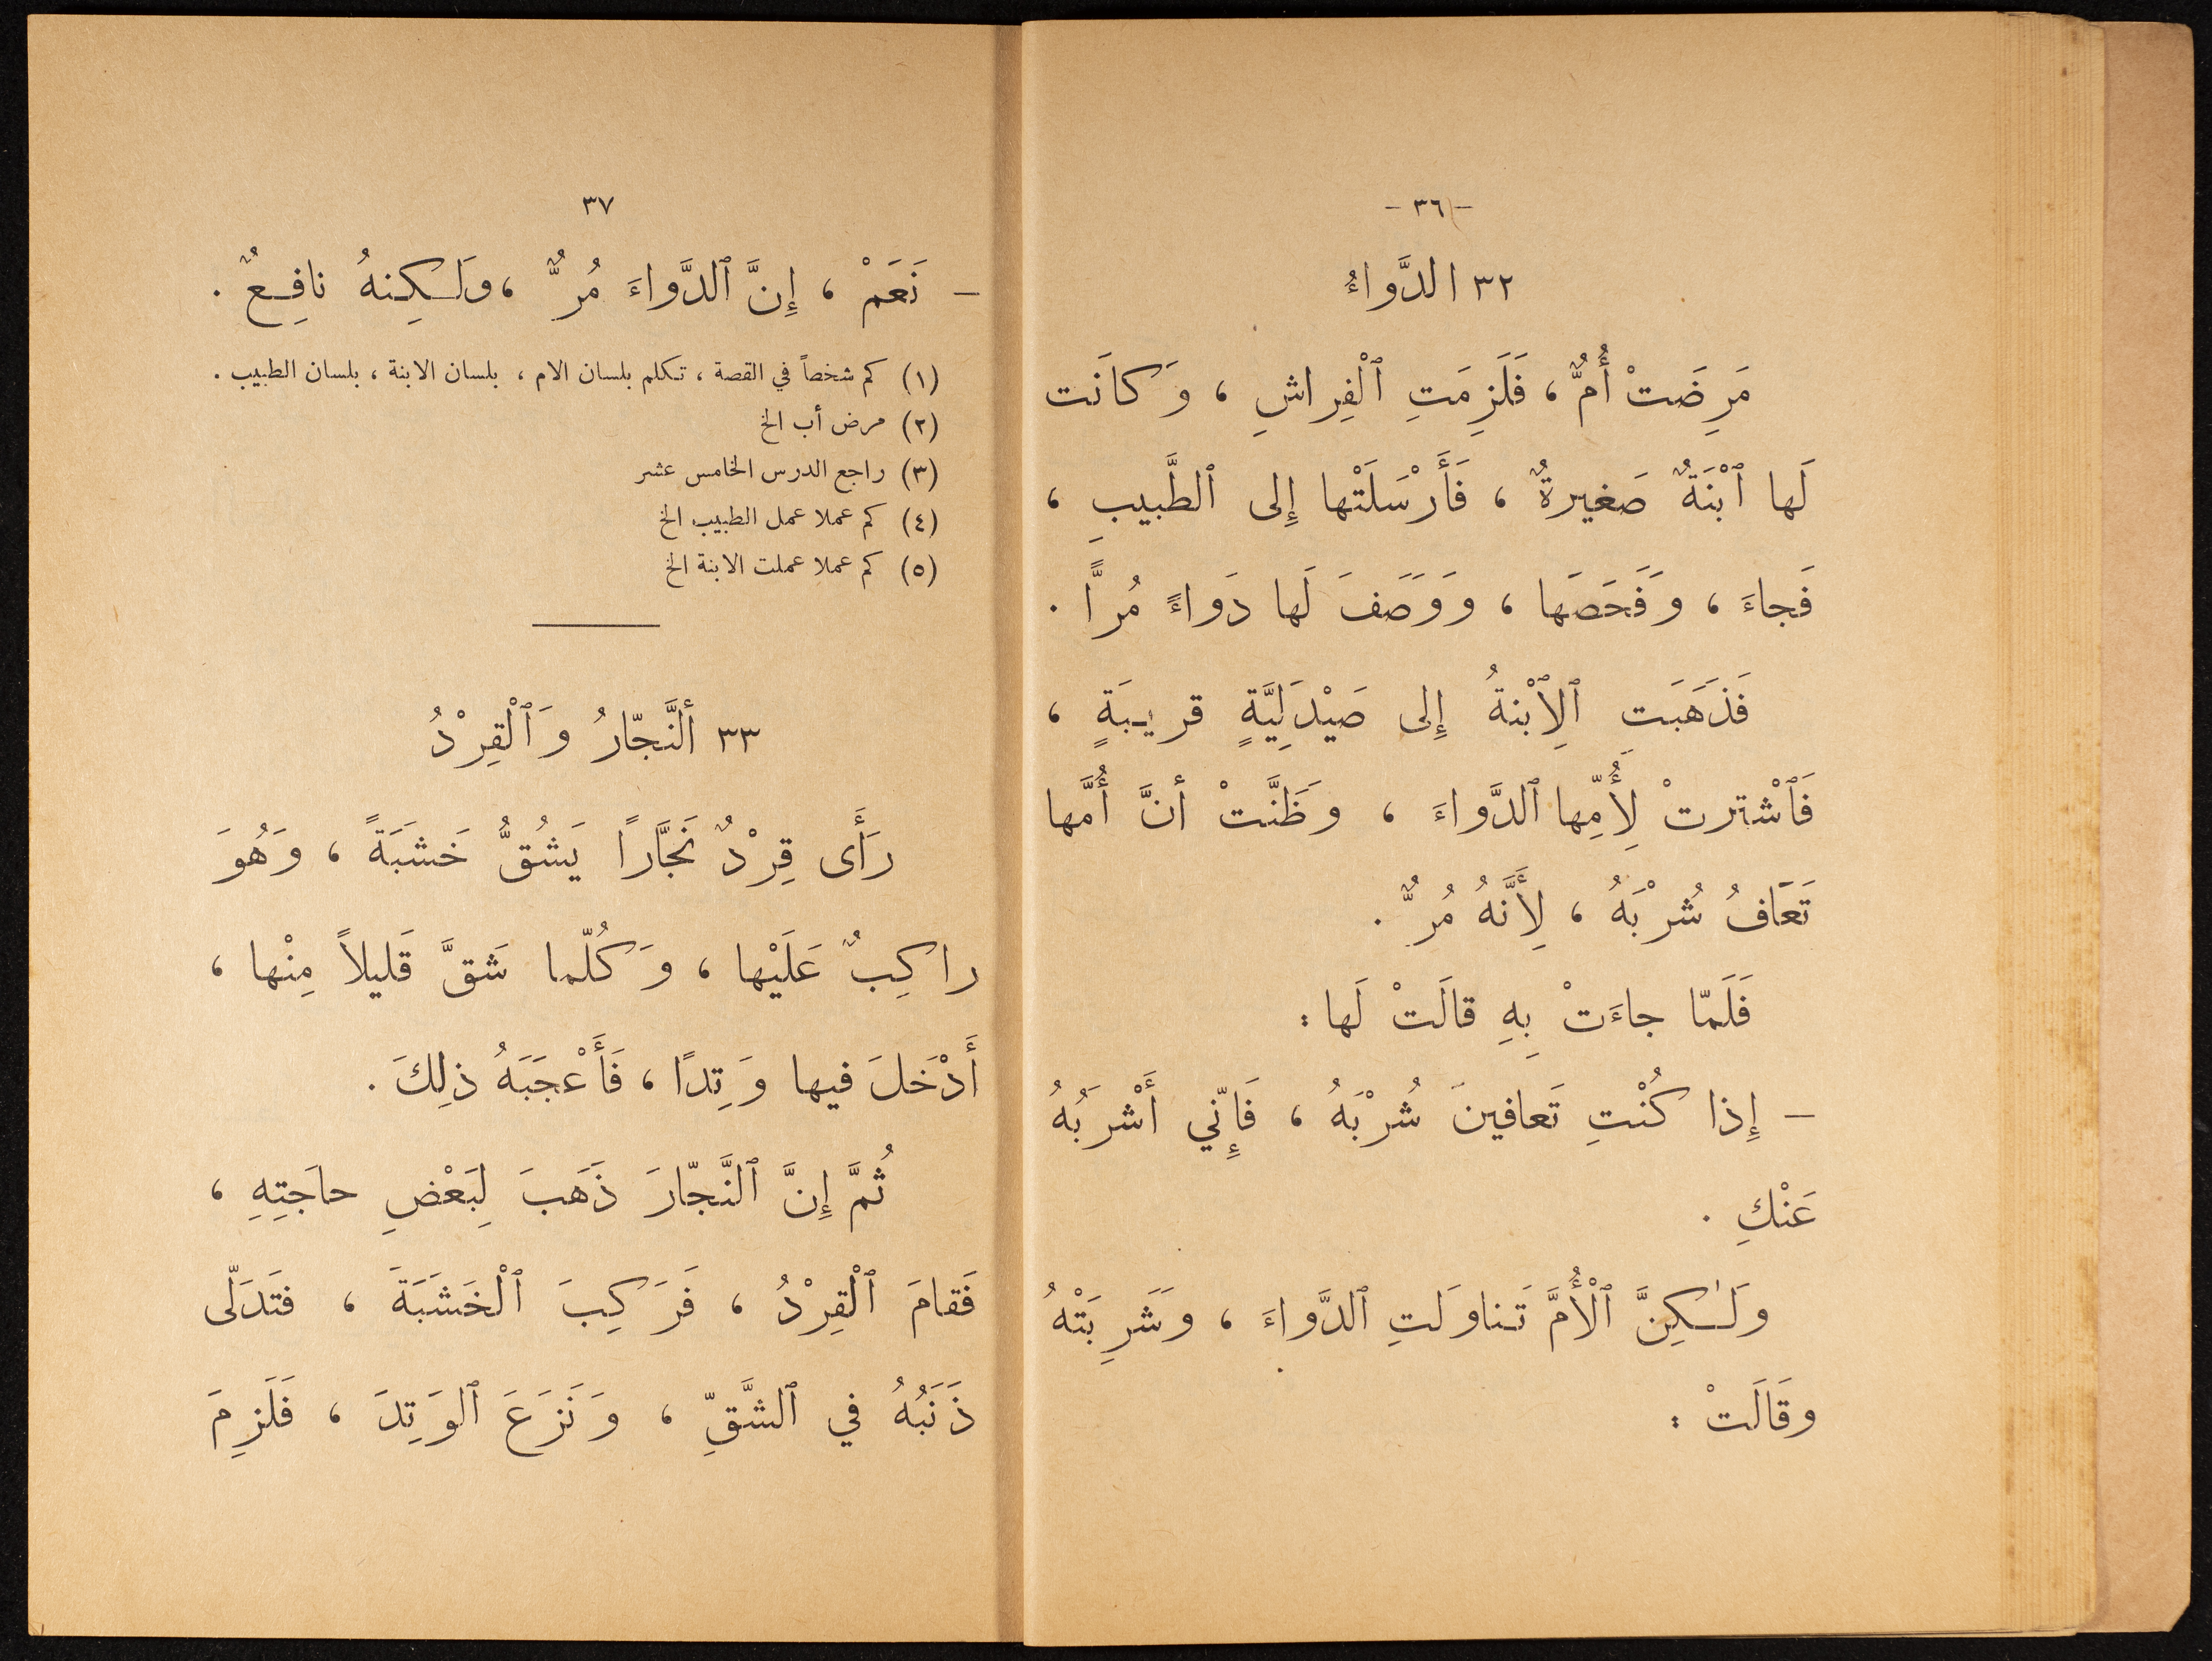 - ٣٦ -
٣٢ الدَّواءُ
مَرِضَتْ أُمٌّ ، فَلَزِمَتِ ٱلْفِراشِ ، وَكانَت
لَها ٱبْنَةٌ صَغيرةٌ ، فَأَرْسَلَتْها إِلى ٱلطَّبيبِ ،
فَجاءَ ، وَفَحَصَها ، وَوَصَفَ لَها دَواءً مُرًّا .
فَذَهَبَتِ ٱلِٱبْنةُ إِلى صَيْدَلِيَّةٍ قريبَةٍ ،
فَٱشْترتْ لِأُمِّها ٱلدَّواءَ ، وَظَنَّتْ أنَّ أُمَّها
تَعَافُ شُرْبَهُ ، لِأَنَّهُ مُرٌّ .
فَلَمّا جاءَتْ بِهِ قالَتْ لَها :
– إِذا كُنْتِ تَعافينَ شُرْبَهُ ، فَإِنّي أَشْرَبُهُ
عَنْكِ .
وَلٰكِنَّ ٱلْأُمَّ تَناوَلتِ ٱلدَّواءَ ، وَشَرِبَتْهُ
وقَالَتْ :
٣٧
– نَعَمْ ، إِنَّ ٱلدَّواءَ مُرٌّ ، ولَكِنهُ نافِعٌ .
(١) كم شخصاً في القصة ، تكلم بلسان الام ، بلسان الابنة ، بلسان الطبيب .
(٢) مرض أب الخ
(٣) راجع الدرس الخامس عشر
(٤) كم عملا عمل الطبيب الخ
(٥) كم عملا عملت الابنة الخ
٣٣ ألنَّجّارُ وَٱلْقِرْدُ
رَأَى قِرْدٌ نَجَّارًا يَشُقُّ خَشَبَةً ، وَهُوَ
راكِبٌ عَلَيْها ، وَكُلّما شَقَّ قَليلاً مِنْها ،
أَدْخَلَ فيها وَتِدًا ، فَأَعْجَبَهُ ذلِكَ .
ثُمَّ إِنَّ ٱلنَّجّارَ ذَهَبَ لِبَعْضِ حاجَتِهِ ،
فَقامَ ٱلْقِرْدُ ، فَرَكِبَ ٱلْخَشَبَةَ ، فتَدَلّى
ذَنَبُهُ في ٱلشَّقِّ ، وَنَزَعَ ٱلوَتِدَ ، فَلَزِمَ